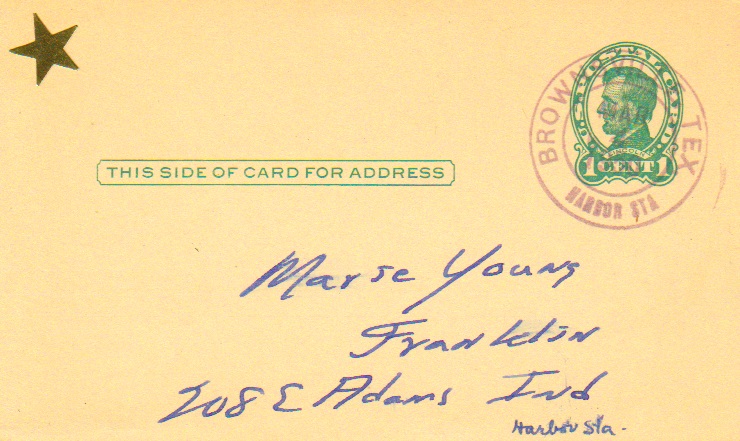 U.S. POSTAL CARD
LINCOLN
1 CENT 1
BROWNSVILLE TEX
MAR
HARBOR STA
THIS SIDE OF CARD FOR ADDRESS
Marse Young
Franklin
208 E Adams Ind
Harbor Sta.